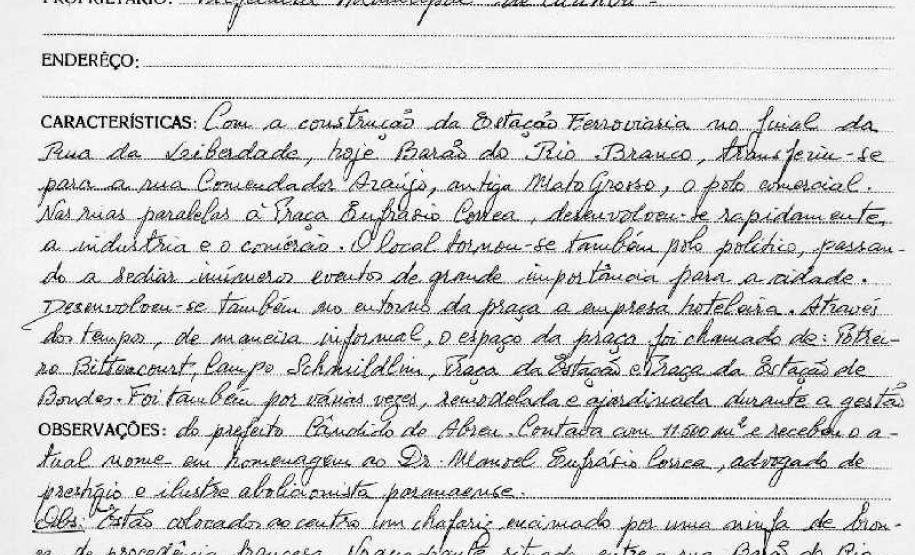 PROPRIETÁRIO: Prefeitura Municipal de Curitiba -
ENDERÊÇO:
CARACTERÍSTICAS: Com a construção da Estação Ferroviaria no final da
Rua da Leiberdade, hoje Barão do Rio Branco, transferiu-se
para a rua Comendador Araújo, antiga Mato Grosso, o polo comercial.
Nas ruas paralelas à Praça Eufrásio Correa, desenvolveu-se rapidamente,
a industria e o comércio. O local tornou-se também polo político, passan-
do a sediar inúmeros eventos de grande importância para a cidade.
Desenvolveu-se também no entorno da praça a empresa hoteleira. Através
dos tempos, de maneira informal, o espaço da praça foi chamado de: Potrei-
ro Bittencourt, Campo Schmildlin, Praça da Estação e Praça da Estação de
Bondes. Foi também por várias vezes, remodelada e ajardinada durante a gestão
OBSERVAÇÕES: do prefeito Cândido de Abreu. Contava com 11.500 m² e recebeu o a-
tual nome em homenagem ao Dr. Manoel Eufrásio Correa, advogado de
prestígio e ilustre abolicionista paranaense.
Obs: Estão colocados ao centro um chafariz encimado por uma ninfa de bron-
ze de procedência francesa. No quadrante situado entre a rua Barão do Rio